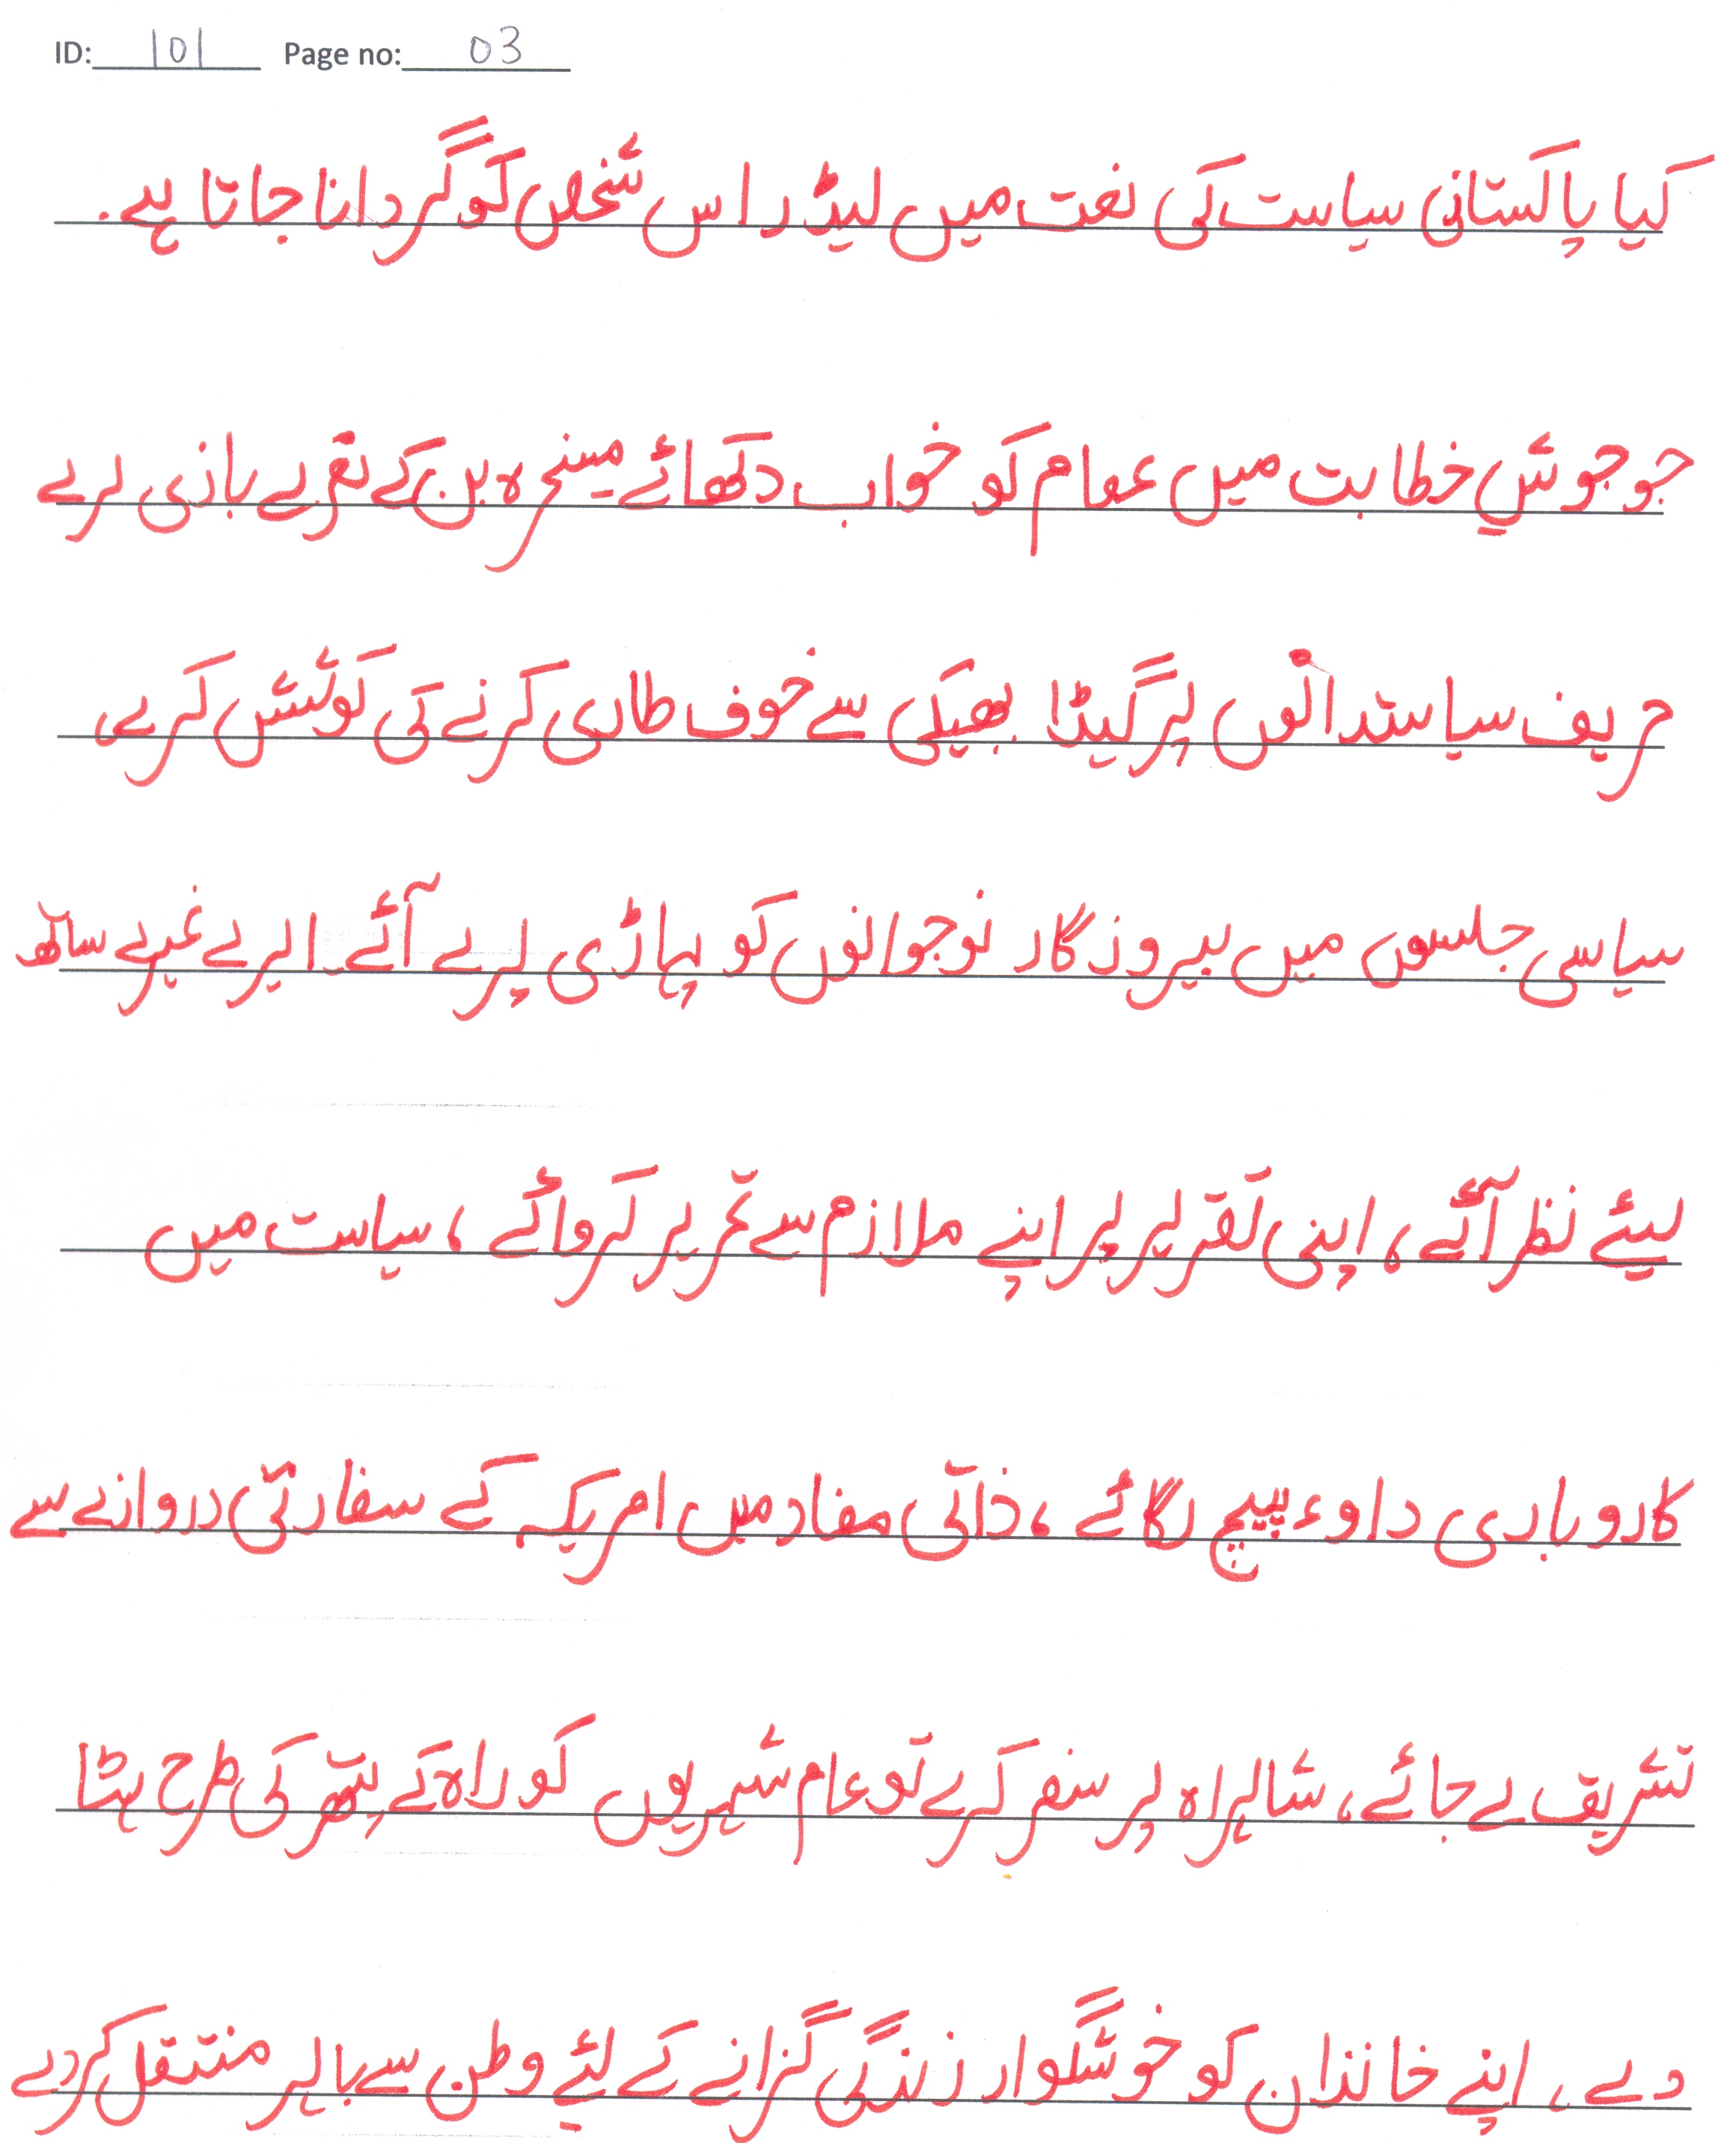 ID: 101 Page no: 03
کیا پاکستانی سیاست کی لغت میں لیڈر اس شخص کو گردانا جاتا ہے.
جو جوشِ خطابت میں عوام کو خواب دکھائے کے نعرے بازی کرے
حریف سیاستدانوں پر گیڈر بھبکی سے خوف طاری کرنے کی کوشش کرے
سیاسی جلسوں میں بیروزگار نوجوانوں کو پہاڑی پر لے آئے ایرے غیرے ساتھ
لیئے نظر آئے، اپنی تقریر پر اپنے ملازم سے تحریر کروائے، سیاست میں
کاروباری داوء پیچ لگائے، ذاتی مفاد میں امریکہ کے سفارتی دروازے سے
تشریف لے جائے، شاہراہ پر سفر کرے تو عام شہریوں کو راہ کے پتھر کی طرح ہٹا
دے، اپنے خاندان کو خوشگوار زندگی گزانے کے لئے وطن سے باہر منتقل کردے